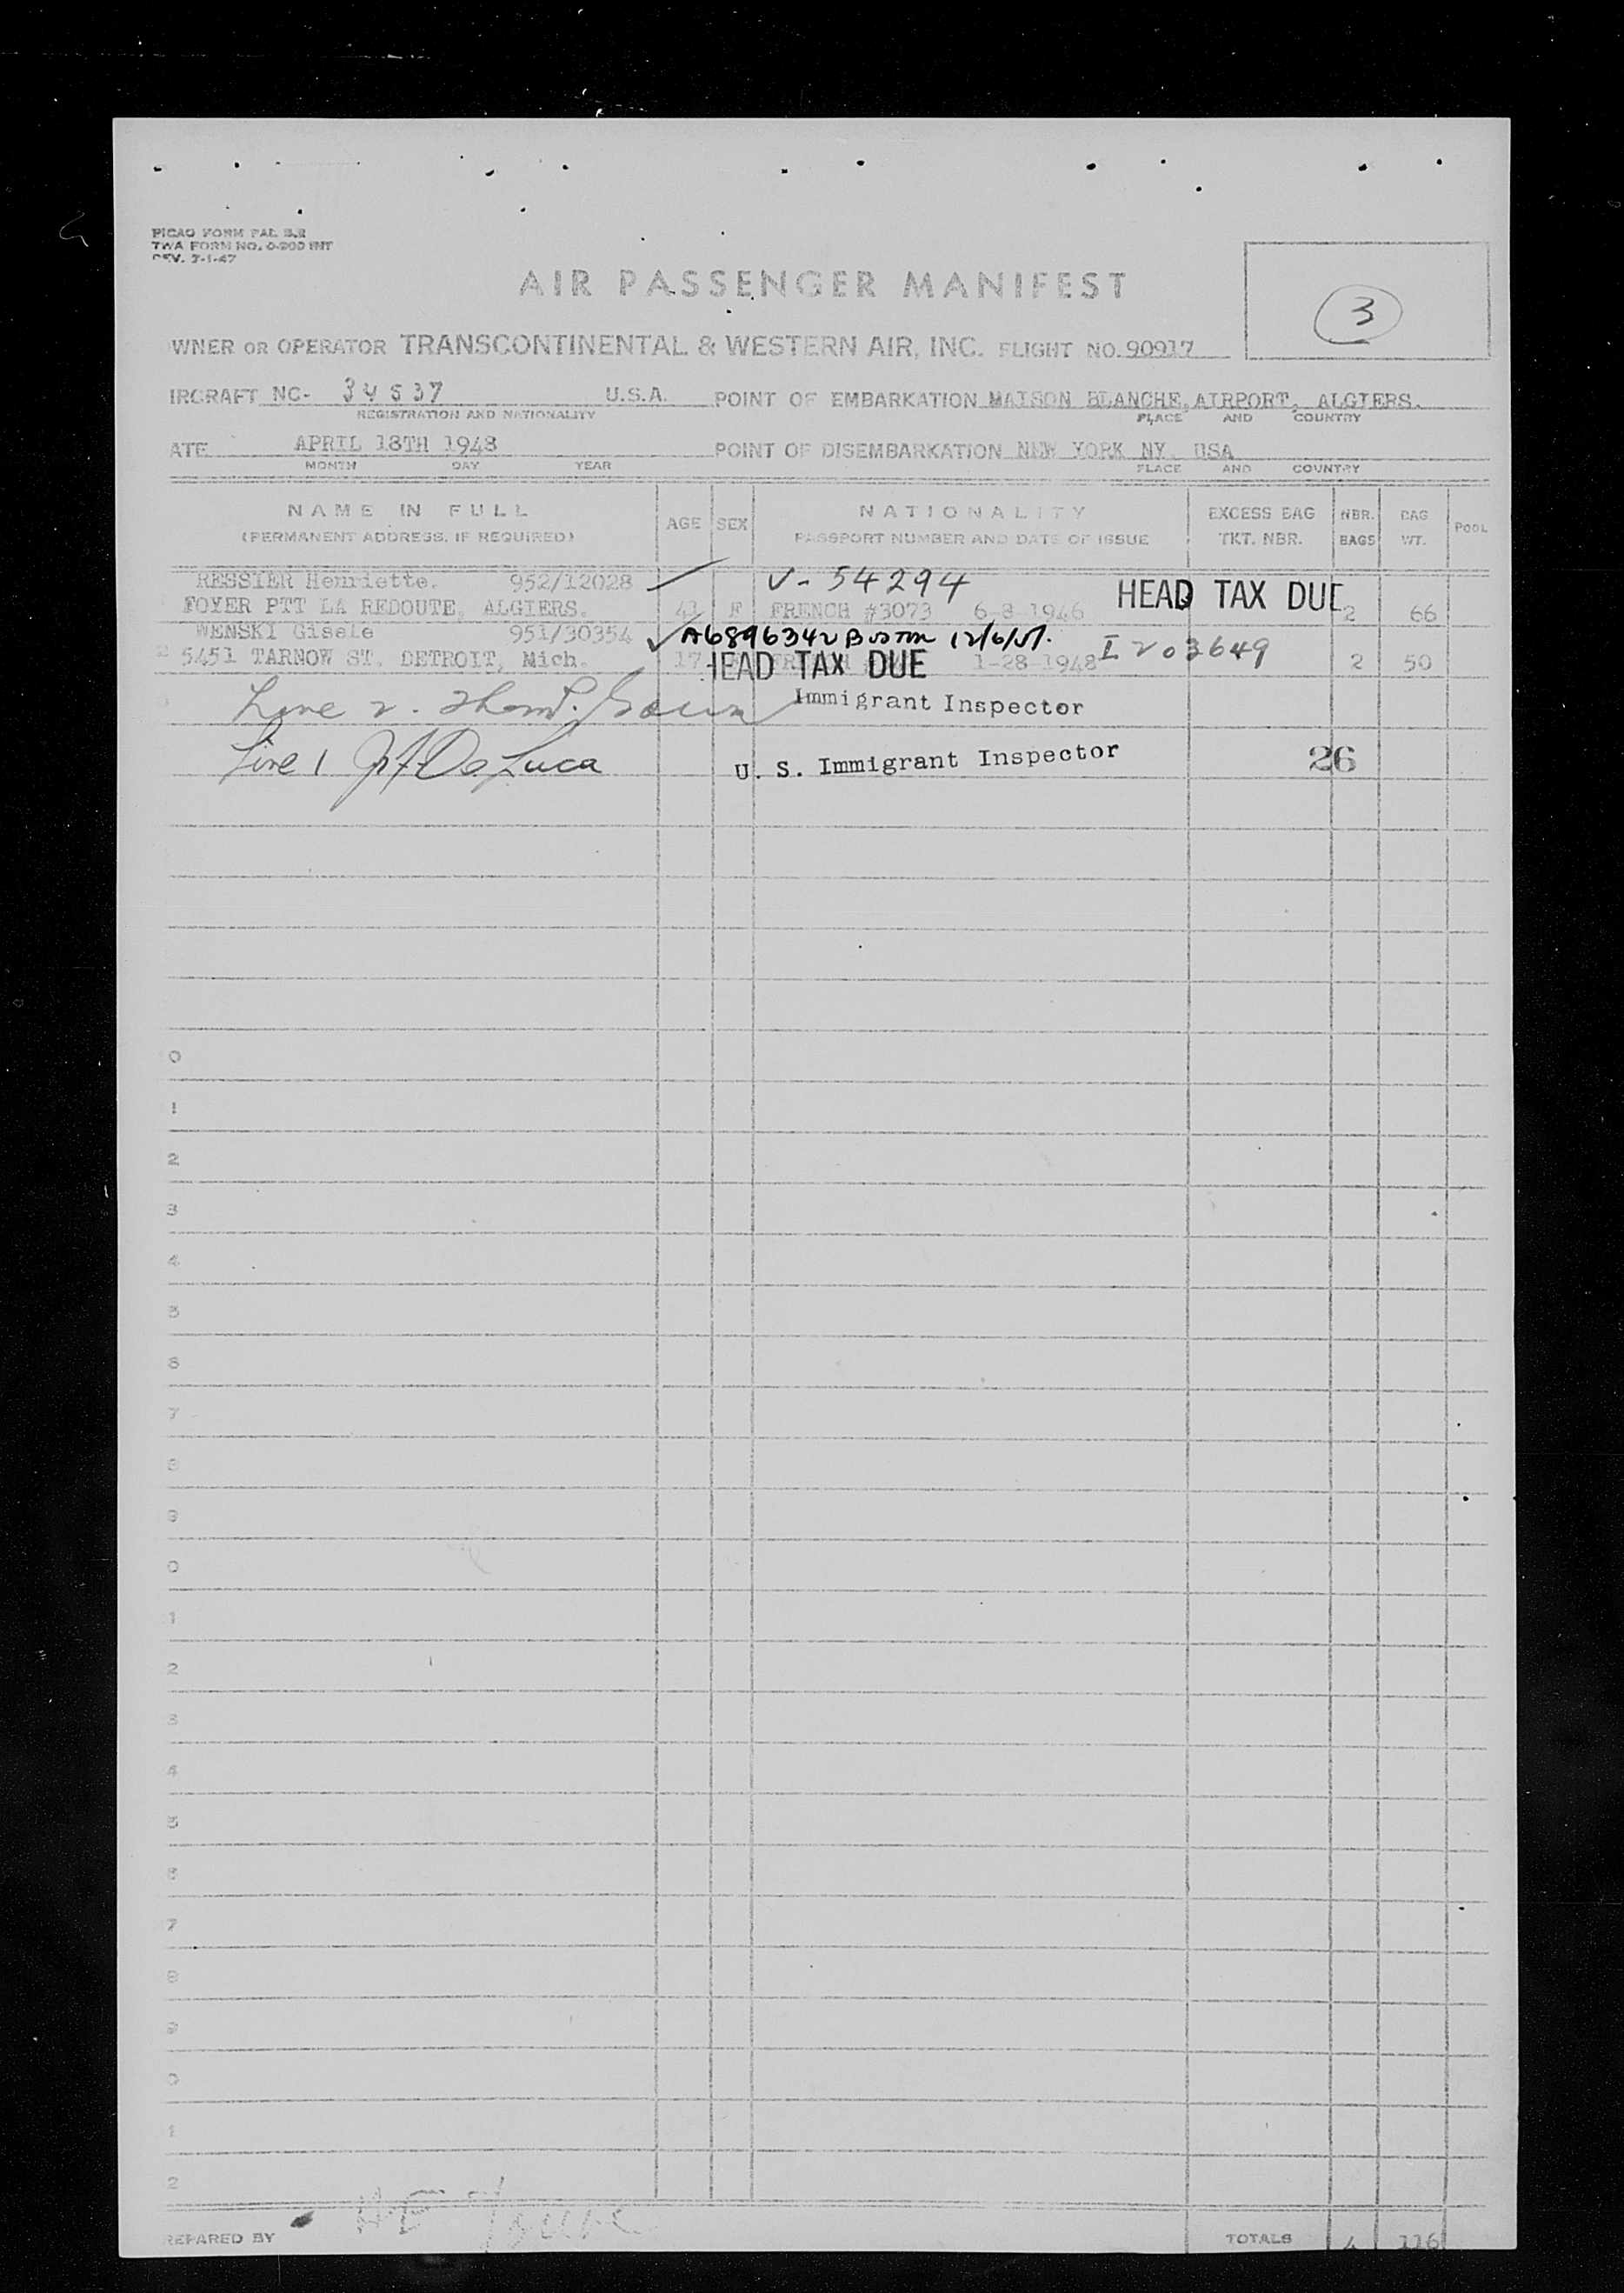 PICAO FORM PAL 3.2
TWA FORM NO. 0-200 INT
REV. 7-1-47
AIR PASSENGER MANIFEST
3
WNER OR OPERATOR TRANSCONTINENTAL & WESTERN AIR, INC. FLIGHT NO. 90917
IRCRAFT NC- 34537 U.S.A. POINT OF EMBARKATION MAISON BLANCHE, AIRPORT, ALGIERS.
REGISTRATION AND NATIONALITY PLACE AND COUNTRY
ATE APRIL 18TH 1948 POINT OF DISEMBARKATION NEW YORK NY. USA
MONTH DAY YEAR PLACE AND COUNTRY
NAME IN FULL AGE SEX NATIONALITY EXCESS BAG NBR. BAG POOL
(PERMANENT ADDRESS, IF REQUIRED) PASSPORT NUMBER AND DATE OF ISSUE TKT. NBR. BAGS WT.
RESSIER Henriette. 952/12028 V-54294 HEAD TAX DUE
FOYER PTT LA REDOUTE, ALGIERS. 41 F FRENCH #3073 6-8-1946 2 66
WENSKI Gisele 951/30354 A6896342 Boston 12/6/51. I 203649
5451 TARNOW ST. DETROIT, Mich. 17 HEAD TAX DUE 1-28-1948 2 50
Line 2. Immigrant Inspector
Line 1 De Luca U. S. Immigrant Inspector 26
0
1
2
3
4
5
6
7
8
9
0
1
2
3
4
5
6
7
8
9
0
1
2
REPARED BY TOTALS 4 116